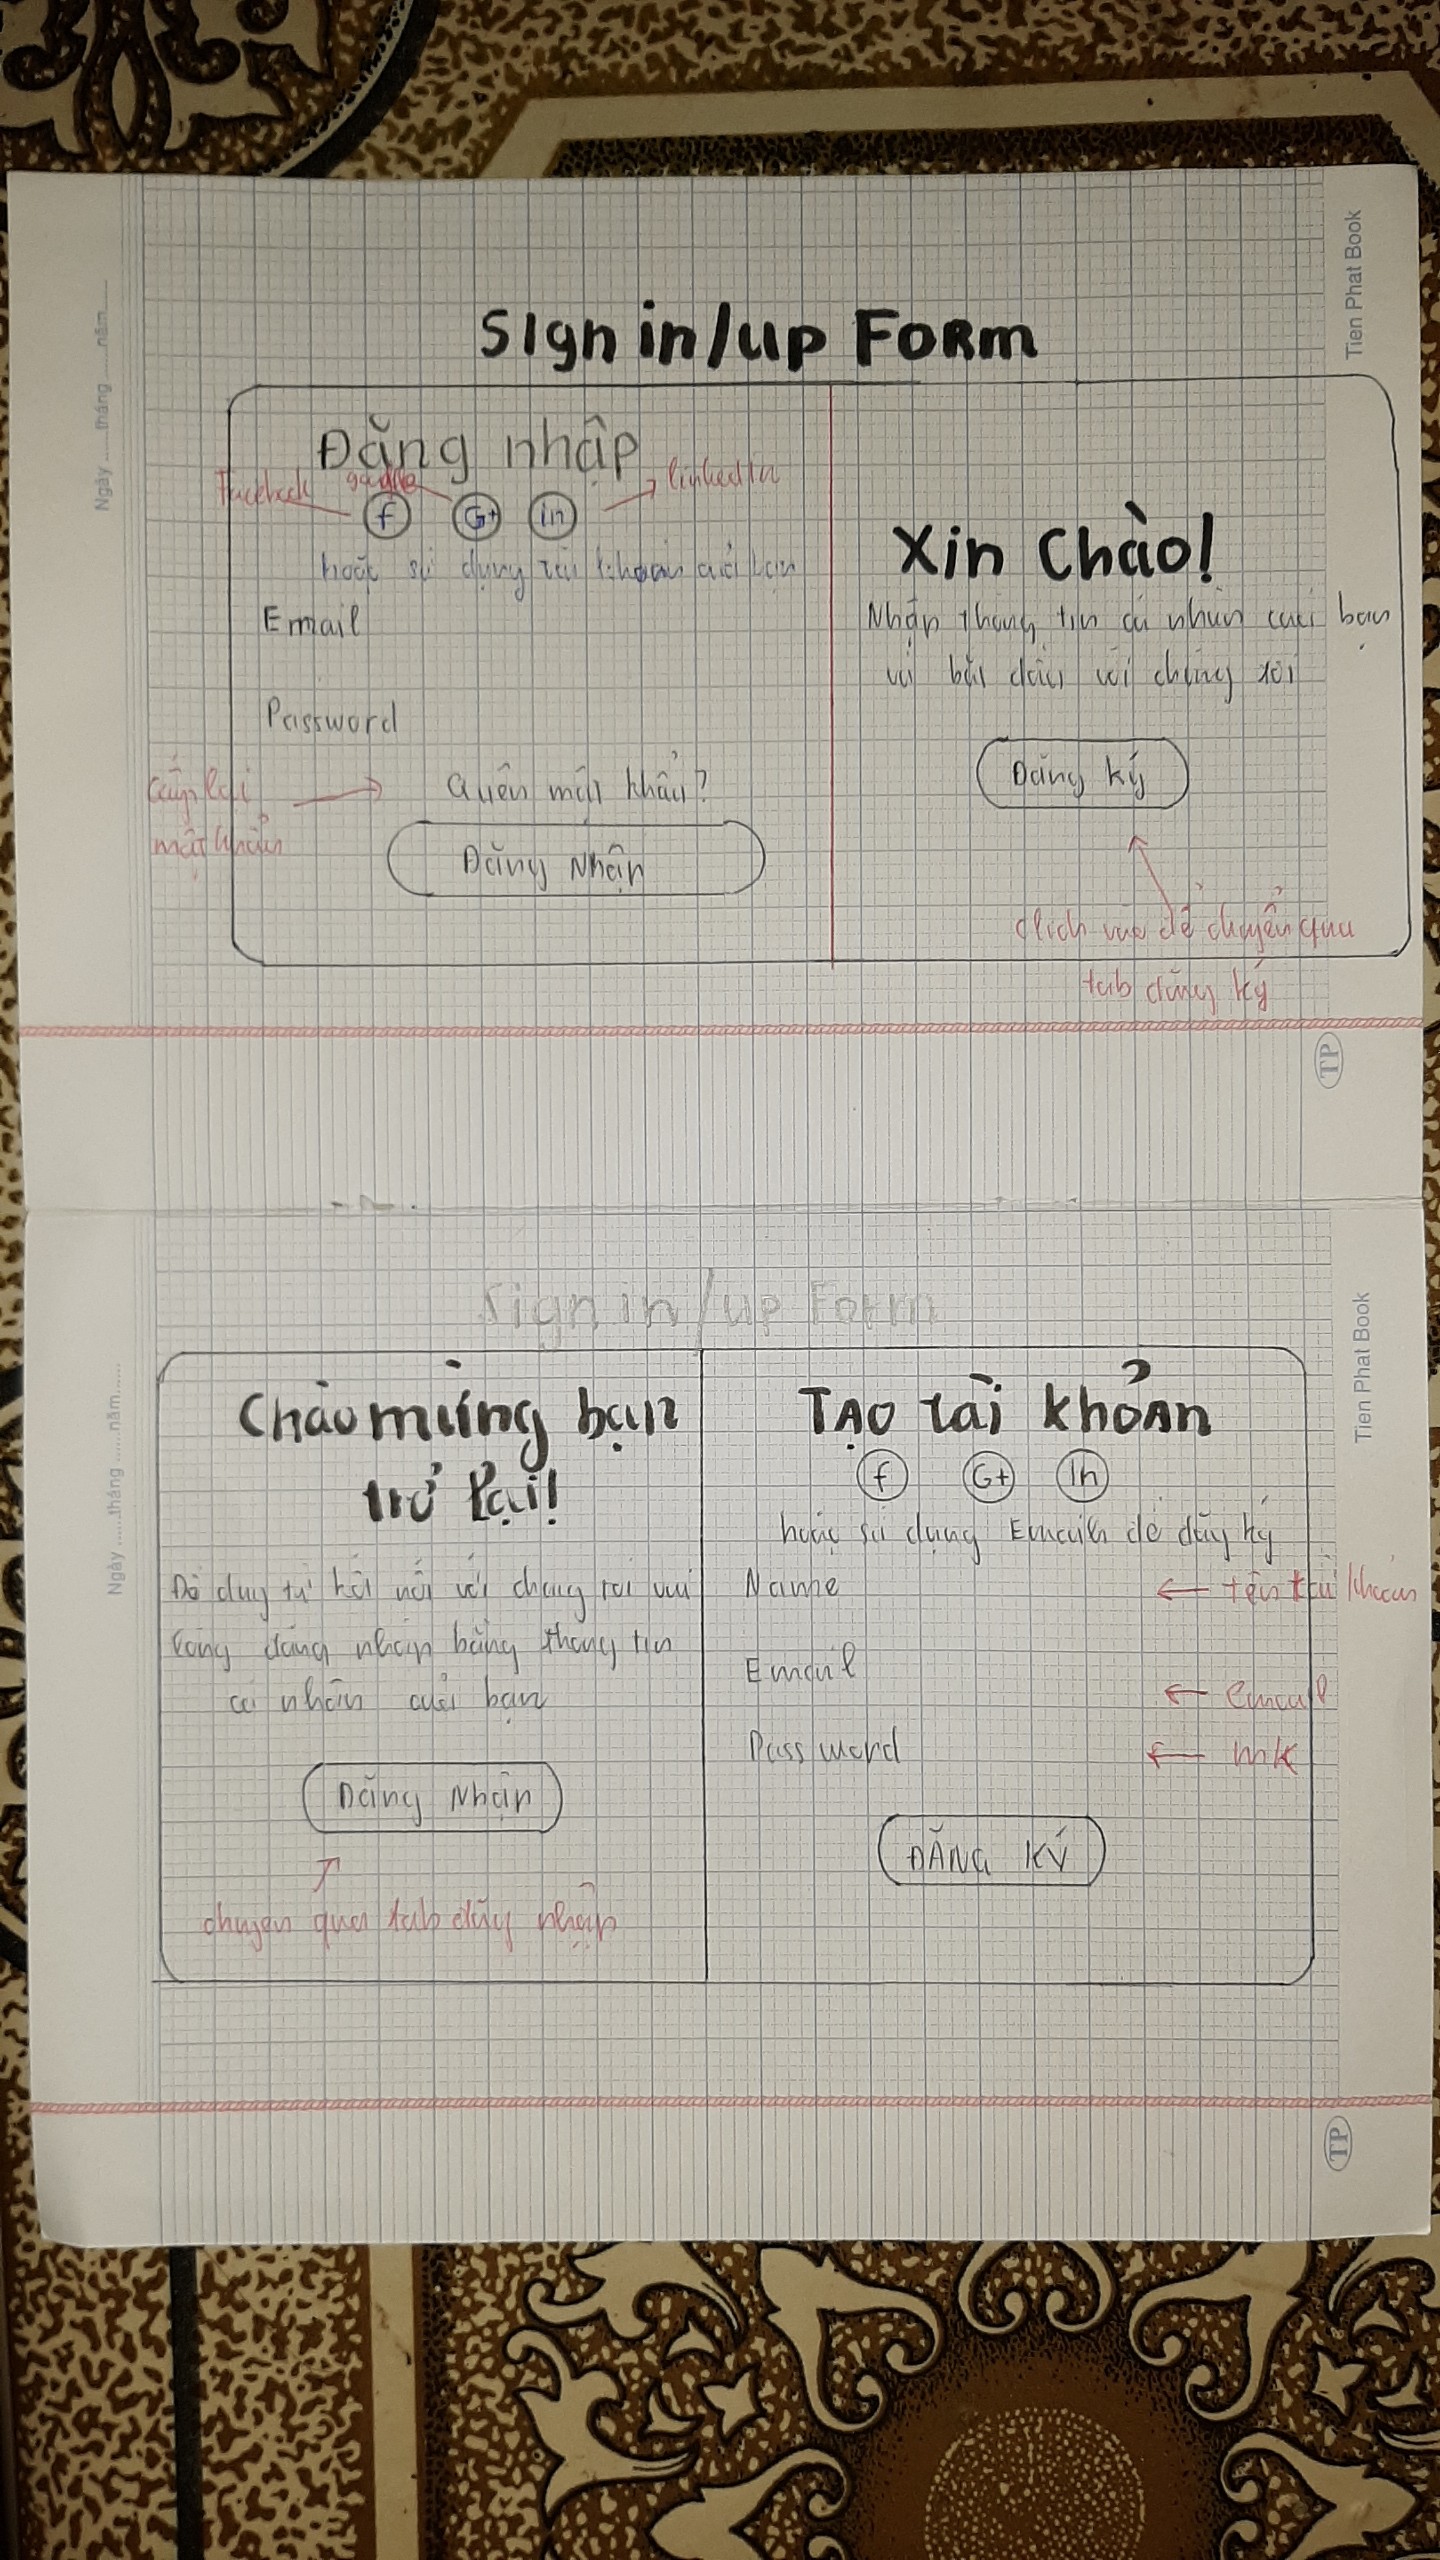 Tien Phat Book
Ngày ......tháng ......năm......
Sign in/up FoRm
Đăng nhập
Facebook google linkedIn
f G+ in
hoặc sử dụng tài khoản của bạn
Email
Password
Cấp lại
mật khẩu
Quên mật khẩu?
Đăng Nhận
Xin Chào!
Nhập thông tin cá nhân của bạn
và bắt đầu với chúng tôi
Đăng ký
Click vào để chuyển qua
tab đăng ký
TP
Tien Phat Book
Ngày ......tháng ......năm......
Sign in/up Form
Chào mừng bạn
trở lại!
Để duy trì kết nối với chúng tôi vui
lòng đăng nhập bằng thông tin
cá nhân của bạn
Đăng Nhận
chuyển qua tab đăng nhập
TẠO tài khoản
f G+ in
hoặc sử dụng Email để đăng ký
Name
tên tài khoản
Email
email
Password
mk
ĐĂNG KÝ
TP